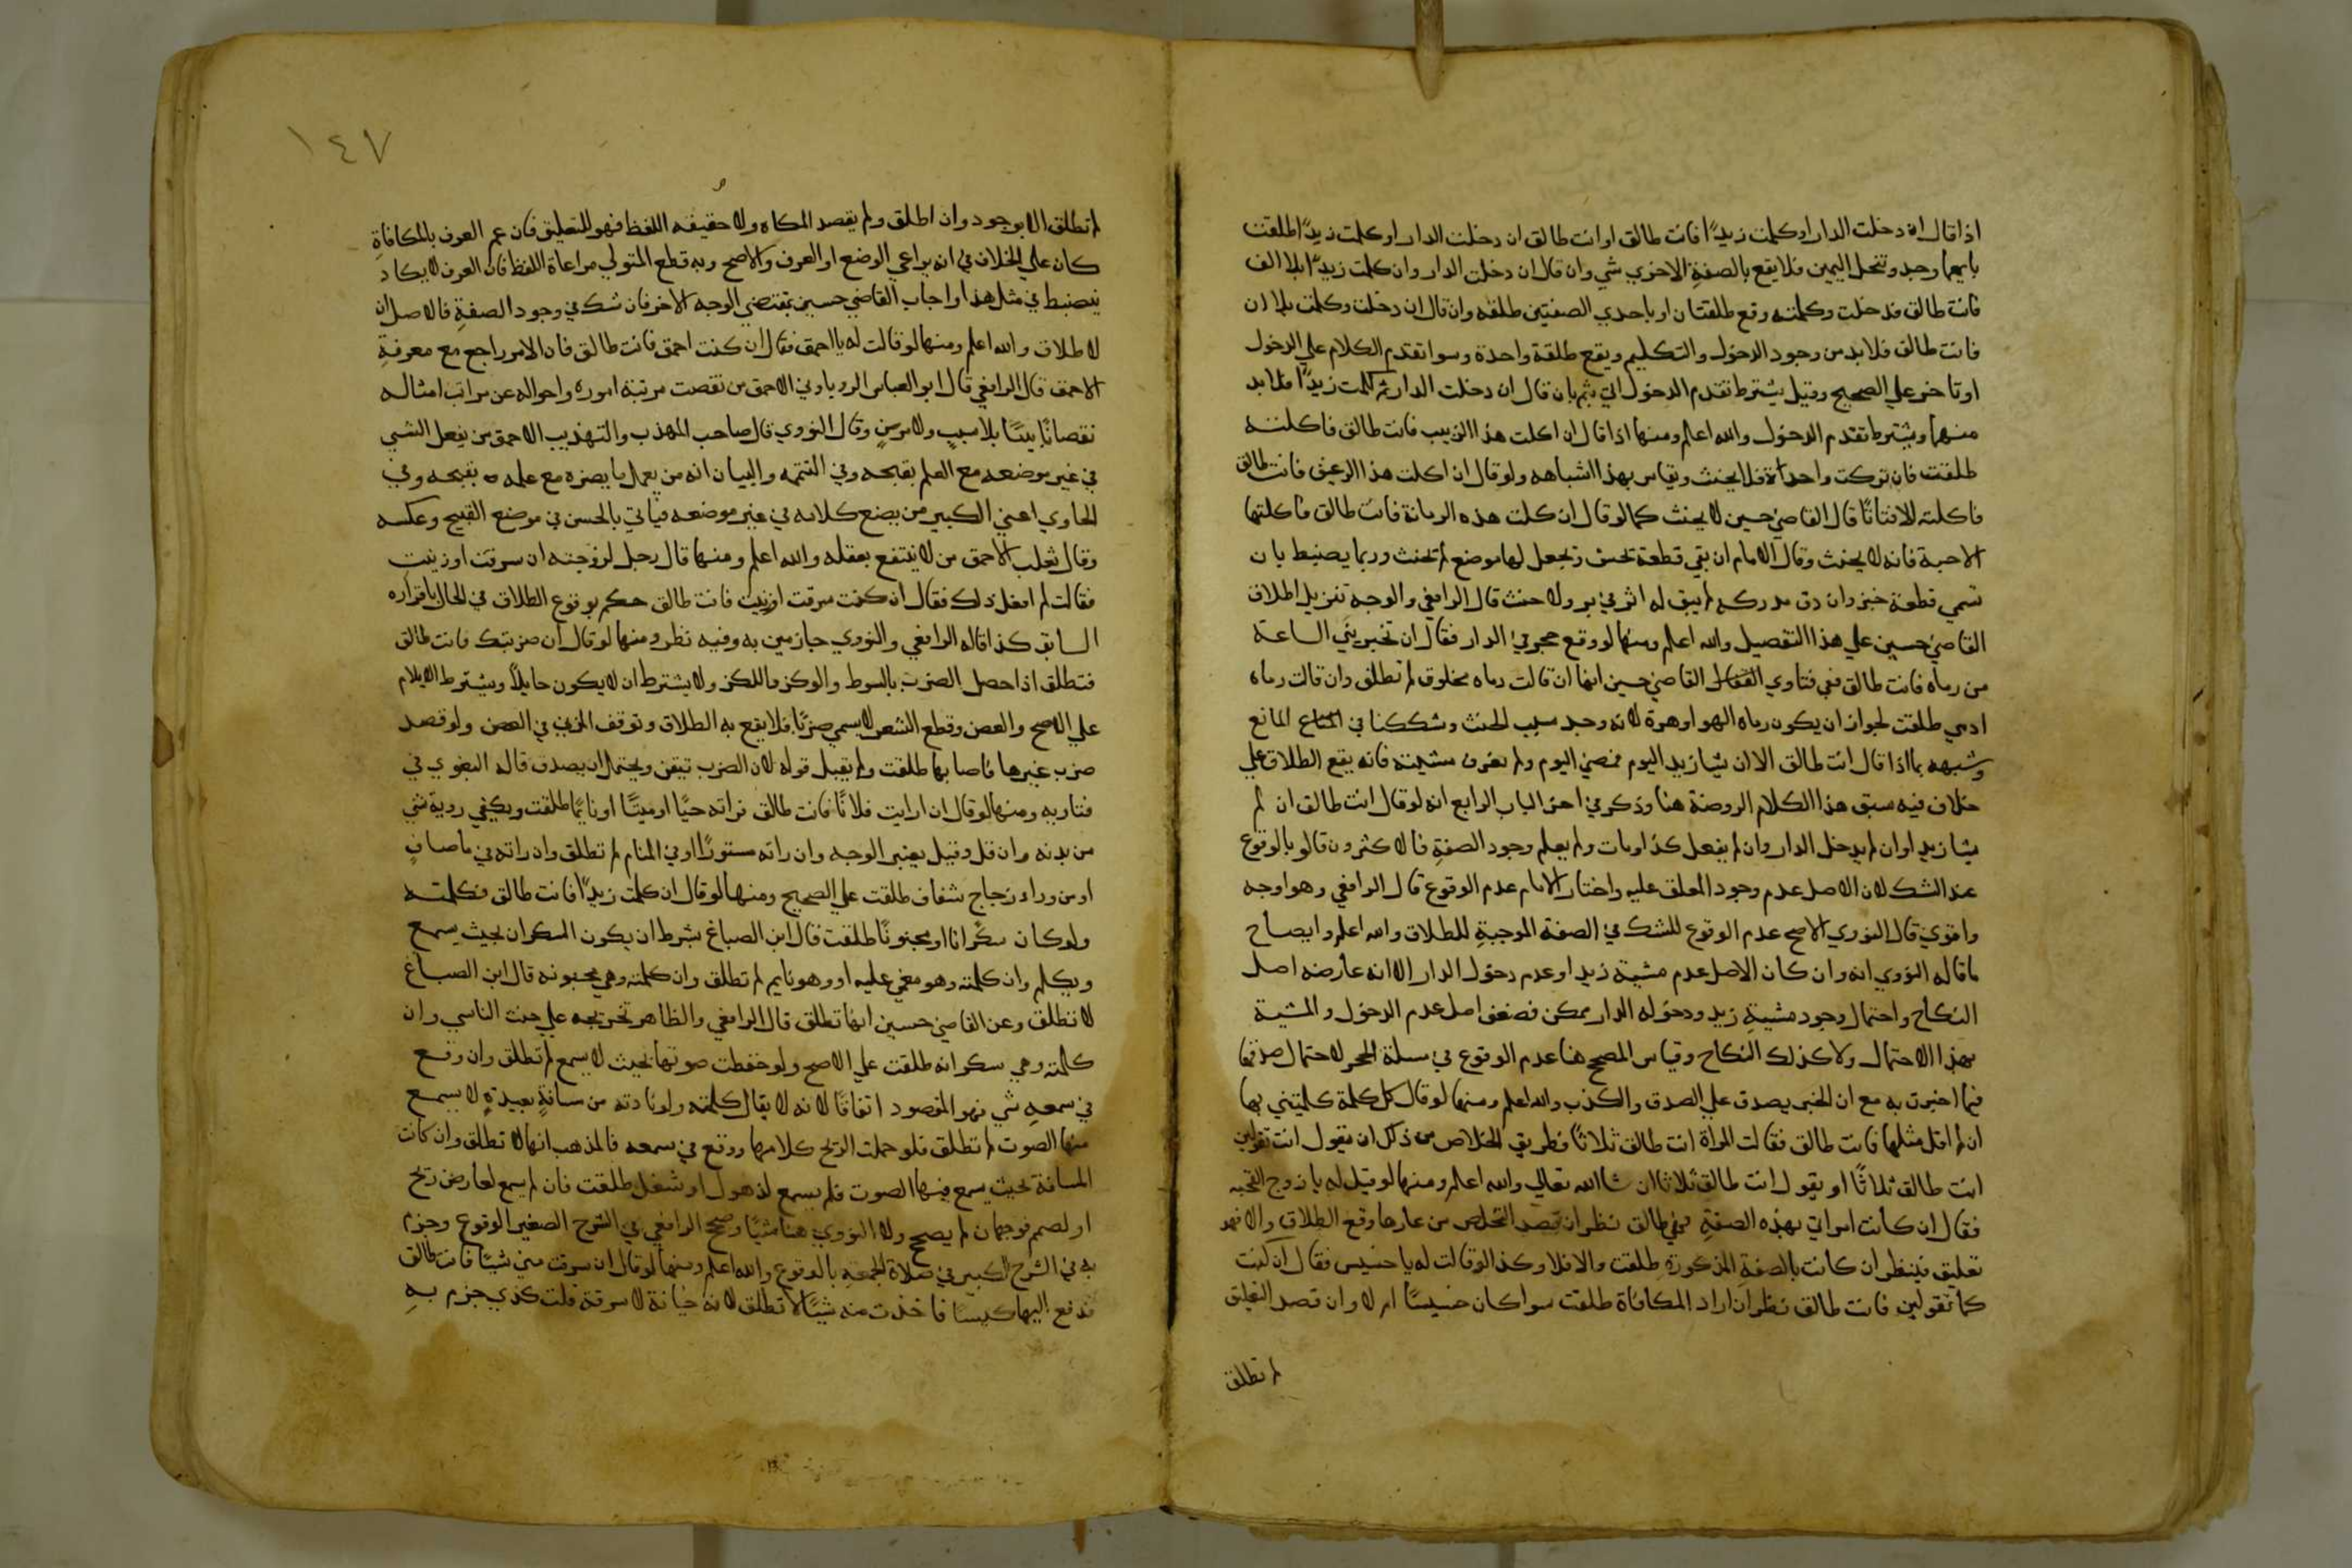 اذا قال ان دخلت الدار او كلمت زيدًا فانت طالق او انت طالق ان دخلت الدار او كلمت زيدًا طلقت
بايهما وجد وتنحل اليمين فلا يقع بالصفة الاخري شي وان قال ان دخلت الدار وان كلمت زيدًا بلا الف
فانت طالق فدخلت وكلمته وقع طلقتان او باحدي الصفتين طلقه وان قال ان دخلت وكلمت بلا ان
فانت طالق فلا بد من وجود الدخول والتكليم ويقع طلقة واحدة وسوا تقدم الكلام علي الدخول
او تاخر علي الصحيح وقيل يشترط تقدم الدخول اتي بثم بان قال ان دخلت الدار ثم كلمت زيدًا فلا بد
منهما ويشترط تقدم الدخول والله اعلم ومنها اذا قال ان اكلت هذا الزبيب فانت طالق فاكلته
طلقت فان تركت واحداة فلا يحنث ويقاس بهذا اشباهه ولو قال ان اكلت هذا الرغيف فانت طالق
فاكلته الا فتاتًا قال القاضي حسين لا يحنث كما لو قال ان اكلت هذه الرمانة فانت طالق فاكلتها
الا حبة فانه لا يحنث وقال الامام ان بقي قطعة تحس وتجعل لها موضع لم تحنث وربما يضبط بان
تسمي قطعة خبز وان دق مدركه لم يبق له اثر في بر ولا حنث قال الرافعي والوجه تنزيل اطلاق
القاضي حسين علي هذا التفصيل والله اعلم ومنها لو وقع حجر في الدار فقال ان تخبريني الساعة
من رماه فانت طالق ففي فتاوي القاضي حسين انها ان قالت رماه مخلوق لم تطلق وان قالت رماه
ادمي طلقت لجواز ان يكون رماه الهوا وهرة لانه وجد سبب الحنث وشككنا في المانع
وشبهه بما اذا قال انت طالق الا ان يشا زيد اليوم فمضي اليوم ولم نعرف مشيته فانه يقع الطلاق علي
خلاف فيه سبق هذا الكلام الروضة هنا وذكر في اخر الباب الرابع انه لو قال انت طالق ان لم
يشا زيد او ان لم يدخل الدار وان لم يفعل كذا ومات ولم يعلم وجود الصفة فالاكثرون قالو بالوقوع
عند الشك لان الاصل عدم وجود المعلق عليه واختار الامام عدم الوقوع قال الرافعي وهو اوجه
واقوي قال النووي الاصح عدم الوقوع للشك في الصفة الموجبة للطلاق والله اعلم وايضاح
ما قاله النووي انه وان كان الاصل عدم مشية زيد او عدم دخول الدار الا انه عارضه اصل
النكاح واحتمال وجود مشية زيد ودخوله الدار ممكن فضعف اصل عدم الدخول والمشية
بهذا الاحتمال ولا كذلك النكاح وقياس المصحح هنا عدم الوقوع في مسلة الحجر لاحتمال صدقها
فيما اخبرت به مع ان الخبر يصدق علي الصدق والكذب والله اعلم ومنها لو قال كل كلمة كلمتيني بها
ان لم اقل مثلها فانت طالق فقالت المراة انت طالق ثلاثًا فطريق الخلاص من ذكر ان يقول انت تقولين
انت طالق ثلاثًا او يقول انت طالق ثلاثا ان شا الله تعالي والله اعلم ومنها لو قيل له يا زوج القحبه
فقال ان كانت امراتي بهذه الصفة فهي طالق نظر ان قصد التخلص من عارها وقع الطلاق والا فهو
تعليق فينظر ان كانت بالصفة المذكورة طلقت والا فلا وكذا لو قالت له يا خسيس فقال ان كنت
كما تقولين فانت طالق نظر ان اراد المكافاة طلقت سوا كان خسيسًا ام لا وان قصد التعليق
لم تطلق
١٤٧
لم تطلق الا بوجود وان اطلق ولم يقصد المكاه ولا حقيقه اللفظ فهو للتعليق فان عم العرف بالمكافاة
كان علي الخلاف في انه يراعي الوضع او العرف والاصح وبه قطع المتولي مراعاة اللفظ فان العرف لا يكاد
ينضبط في مثل هذا واجاب القاضي حسين بمقتضي الوجه الاخر فان شك في وجود الصفة فالاصل ان
لا طلاق والله اعلم ومنها لو قالت له يا احمق فقال ان كنت احمق فانت طالق فان الامر راجع مع معرفة
الاحمق قال الرافعي قال ابو العباس الروياوني الاحمق من نقصت مرتبة اموره واحواله عن مراتب امثاله
نقصانًا بينًا بلا سبب ولا مرض وقال النووي قال صاحب المهذب والتهذيب الاحمق من يفعل الشي
في غير موضعه مع العلم بقبحه وفي التتمه والبيان انه من يعمل ما يضره مع علمه بقبحه وفي
الحاوي اعني الكبير من يضع كلامه في غير موضعه فياتي بالحسن في موضع القبيح وعكسه
وقال ثعلب الاحمق من لا ينتفع بعقله والله اعلم ومنها قال رجل لزوجته ان سرقت او زنيت
فقالت لم افعل ذلك فقال ان كنت سرقت او زنيت فانت طالق حكم بوقوع الطلاق في الحال باقراره
السابق كذا قاله الرافعي والنووي جازمين به وفيه نظر ومنها لو قال ان ضربتك فانت طالق
فتطلق اذا حصل الضرب بالسوط والوكز واللكز ولا يشترط ان لا يكون حايلًا ويشترط الايلام
علي الاصح والعض وقطع الشعر لا يسمي ضربًا فلا يقع به الطلاق وتوقف المزني في العض ولو قصد
ضرب غيرها فاصابها طلقت ولم يقبل قوله لان الضرب تيقن ويحتمل ان يصدق قاله البغوي في
فتاويه ومنها لو قال ان رايت فلانًا فانت طالق فراته حيًا او ميتًا او نايمًا طلقت ويكفي روية شي
من بدنه وان قل وقيل يعتبر الوجه وان راته مستورًا او في المنام لم تطلق وان راته في ما صاف
او من وراء زجاج شفاف طلقت علي الصحيح ومنها لو قال ان كلمت زيدًا فانت طالق فكلمته
ولو كان سكرانا او مجنونًا طلقت قال ابن الصباغ بشرط ان يكون السكران بحيث يسمع
ويكلم وان كلمته وهو مغمي عليه او وهو نايم لم تطلق وان كلمته وهي مجنونه قال ابن الصباغ
لا تطلق وعن القاضي حسين انها تطلق قال الرافعي والظاهر تخريجه علي حنث الناسي وان
كلمته وهي سكرانه طلقت علي الاصح ولو خفضت صوتها بحيث لا يسمع لم تطلق وان وقع
في سمعه شي فهو المقصود اتفاقًا لانه لا يقال كلمته ولو نادته من مسافة بعيدة لا يسمع
منها الصوت لم تطلق فلو حملت الريح كلامها ووقع في سمعه فالمذهب انها لا تطلق وان كانت
المسافة بحيث يسمع فيها الصوت فلم يسمع لذهول او شغل طلقت فان لم يسمع لعارض ريح
او لصمم فوجهان لم يصحح ولا النووي هنا شيًا وصحح الرافعي في الشرح الصغير الوقوع وجزم
به في الشرح الكبير في صلاة الجمعه بالوقوع والله اعلم ومنها لو قال ان سرقت مني شيئًا فانت طالق
فدفع اليها كيسًا فاخذت منه شيًا لا تطلق لانه خيانة لا سرقة قلت كذي جزم به